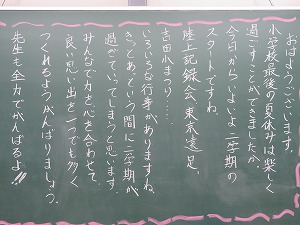 おはようございます。
小学校最後の夏休みは楽しく
過ごすことができましたか。
今日からいよいよ二学期の
スタートですね。
陸上記録会、東京遠足、
吉田小まつり……
いろいろな行事がありますね。
きっとあっという間に二学期が
過ぎていってしまうと思います。
みんなで力を心を合わせて、
良い思い出を一つでも多く
つくれるようがんばりましょう。
先生も全力でがんばるよ!!